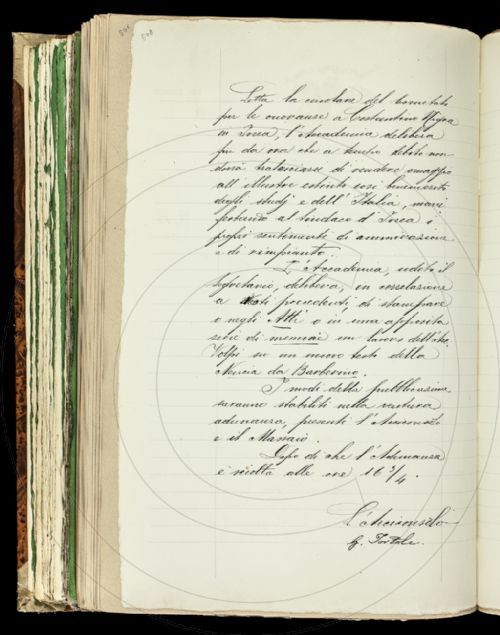 Letta la circolare del Comitato
per le onoranze a Costantino Nigra
in Ivrea, l'Accademia delibera
fin da ora che a tempo debito non
dovrà tralasciarsi di rendere omaggio
all'illustre estinto così benemerito
degli studj e dell'Italia, mani
festando al Sindaco d'Ivrea i
proprj sentimenti di ammirazione
e di rimpianto.
L'Accademia, udito il
Segretario, delibera, in correlazione
a atti precedenti, di stampare
o negli Atti o in una apposita
serie di memorie un lavoro dell'
Volpi su un nuovo testo della
Nencia da Barberino.
I modi della pubblicazione
saranno stabiliti nella ventura
adunanza, presenti l'Arciconsolo
e il Massaio.
Dopo di che l'Adunanza
è sciolta alle ore 16 3/4.
L'Arciconsolo
G. Tortoli.